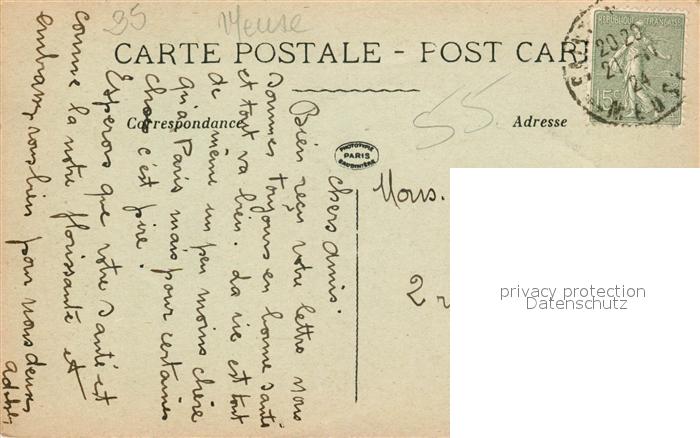 35
Meuse
CARTE POSTALE - POST CAR
Correspondance
Adresse
55
PHOTOTYPIE
PARIS
BAUDINIÈRE
RÉPUBLIQUE FRANÇAISE
15c
20 20
24
24
MEUSE
Mons.
2 r
privacy protection
Datenschutz
chers amis.
Bien reçu votre lettre nous
sommes toujours en bonne santé
et tout va bien. La vie est tout
de même un peu moins chère
qu'à Paris mais pour certaines
choses c'est pire.
Esperons que votre santé est
comme la notre florissante et
embrassez vous bien pour nous deux